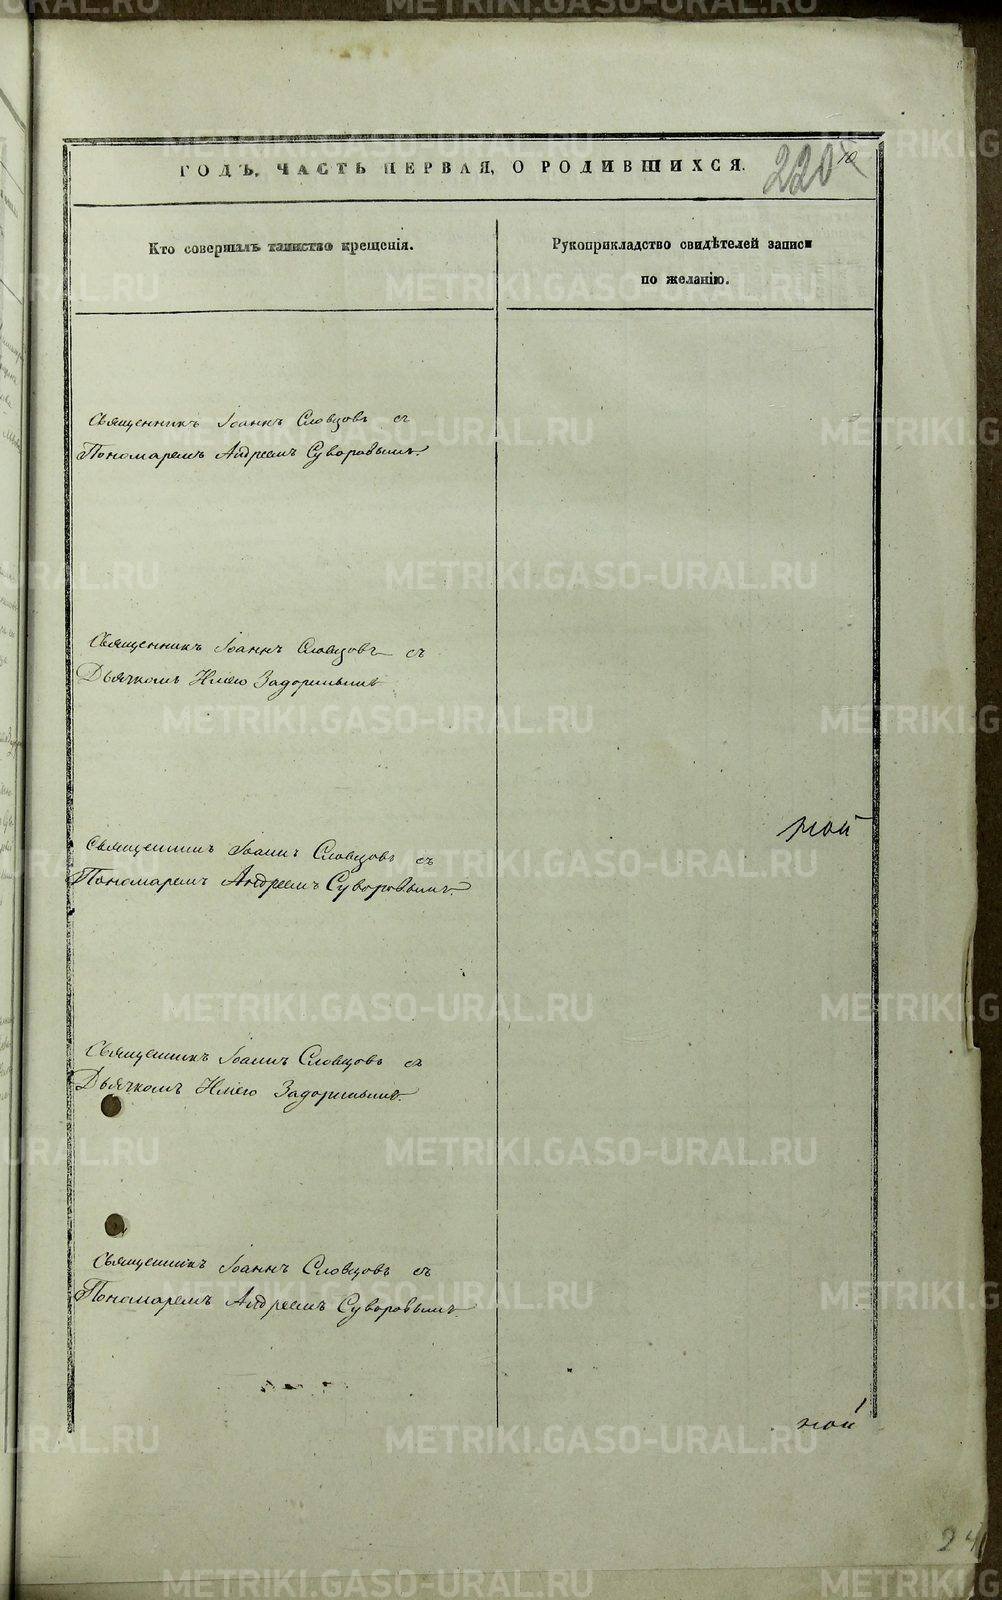 ГОДЪ. ЧАСТЬ ПЕРВАЯ, О РОДИВШИХСЯ.
220
Кто совершалъ таинство крещенія.
Рукоприкладство свидѣтелей записи
по желанію.
Священникъ Іоаннъ Словцовъ съ
Пономаремъ Андреемъ Суворовымъ.
Священникъ Іоаннъ Словцовъ съ
Дьячкомъ Задоринымъ
ной
Священникъ Іоаннъ Словцовъ съ
Пономаремъ Андреемъ Суворовымъ.
Священникъ Іоаннъ Словцовъ съ
Дьячкомъ Задоринымъ.
Священникъ Іоаннъ Словцовъ съ
Пономаремъ Андреемъ Суворовымъ.
ной
METRIKI.GASO-URAL.RU